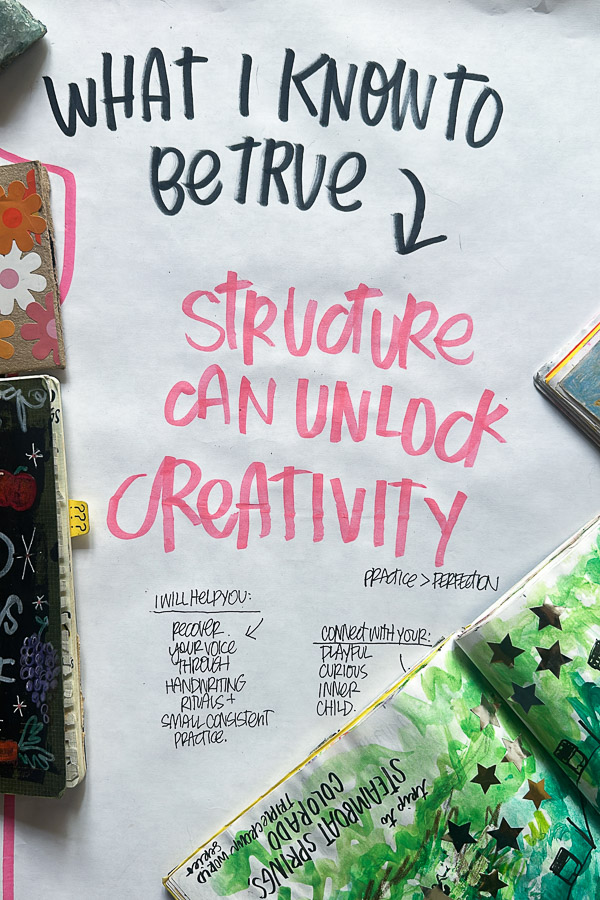 WHAT I KNOW TO
BE TRUE
STRUCTURE
CAN UNLOCK
CREATIVITY
PRACTICE > PERFECTION
I WILL HELP YOU:
RECOVER
YOUR VOICE
THROUGH
HANDWRITING
RITUALS +
SMALL CONSISTENT
PRACTICE.
CONNECT WITH YOUR:
PLAYFUL
CURIOUS
INNER
CHILD.
???
trip to
STEAMBOAT SPRINGS,
COLORADO
TRIPLE CROWN WORLD
SERIES